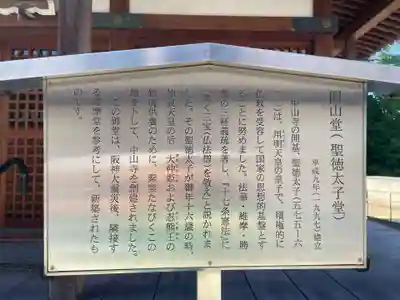 開山堂(聖徳太子堂)
平成九年(一九九七)建立
中山寺の開基、聖徳太子(五七五―六
二二)は、用明天皇の皇子で、積極的に
仏教を受容して国家の思想的基盤とす
ることに努めました。法華・維摩・勝
鬘の三経義疏を著し、『十七条憲法』に
「篤く三宝(仏法僧)を敬え」と説かれま
した。その聖徳太子が御年十六歳の時、
仲哀天皇の后 大仲姫および忍熊王の
追善供養のために、紫雲たなびくこの
地をトして、中山寺を創建されました。
この御堂は、阪神大震災後、隣接す
る護摩堂を参考にして、新築されたも
のです。